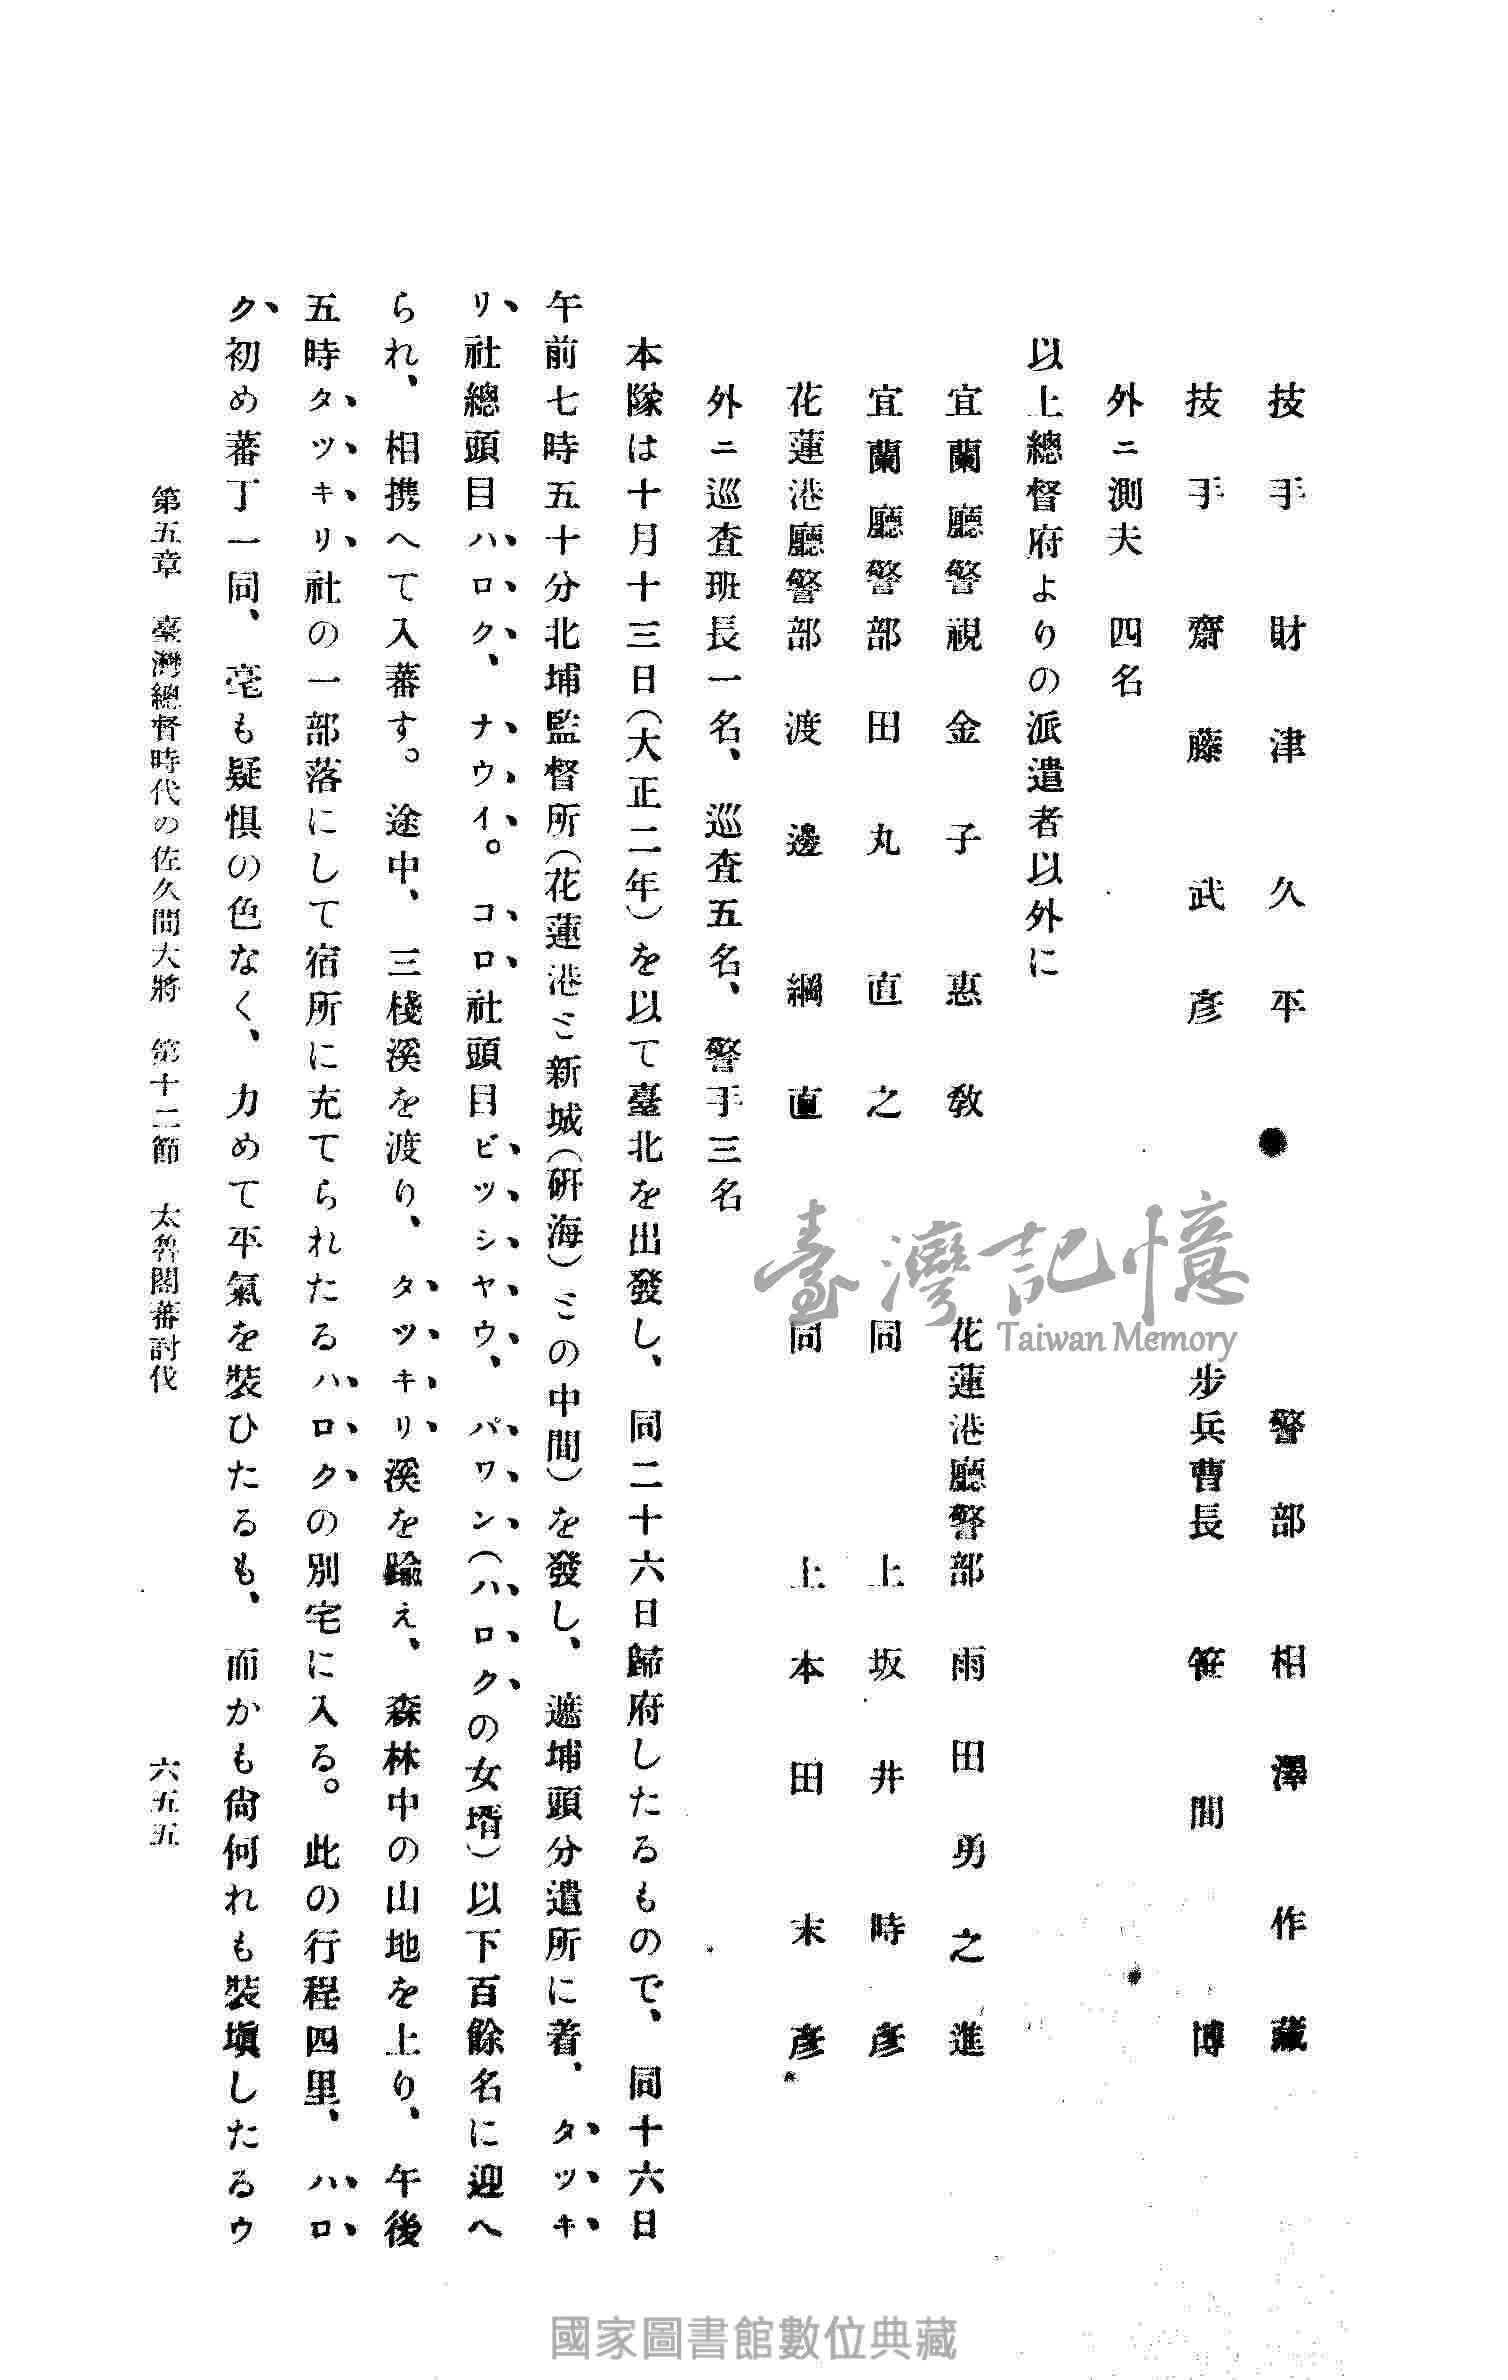 技手 財津久平 警部 相澤作藏
技手 齋藤武彥 步兵曹長 笹間博
外ニ測夫 四名
以上總督府よりの派遣者以外に
宜蘭廳警視 金子惠敎 花蓮港廳警部 雨田勇之進
宜蘭廳警部 田丸直之 同 上坂井時彥
花蓮港廳警部 渡邊綱直 同 上本田末彥
外ニ巡査班長一名、巡査五名、警手三名
本隊は十月十三日(大正二年)を以て臺北を出發し、同二十六日歸府したるもので、同十六日
午前七時五十分北埔監督所(花蓮港ミ新城(硏海)ミの中間)を發し、遮埔頭分遣所に着、タッキ
リ社總頭目ハロク、ナウイ。コロ社頭目ビッシヤウ、パワン(ハロクの女壻)以下百餘名に迎へ
られ、相携へて入蕃す。途中、三棧溪を渡り、タツキリ溪を踰え、森林中の山地を上り、午後
五時タッキリ社の一部落にして宿所に充てられたるハロクの別宅に入る。此の行程四里、ハロ
ク初め蕃丁一同、毫も疑惧の色なく、力めて平氣を裝ひたるも、而かも尙何れも裝塡したるゥ
第五章 臺灣總督時代の佐久間大將 第十二節 太魯閣蕃討伐 六五五
臺灣記憶
Taiwan Memory
國家圖書館數位典藏